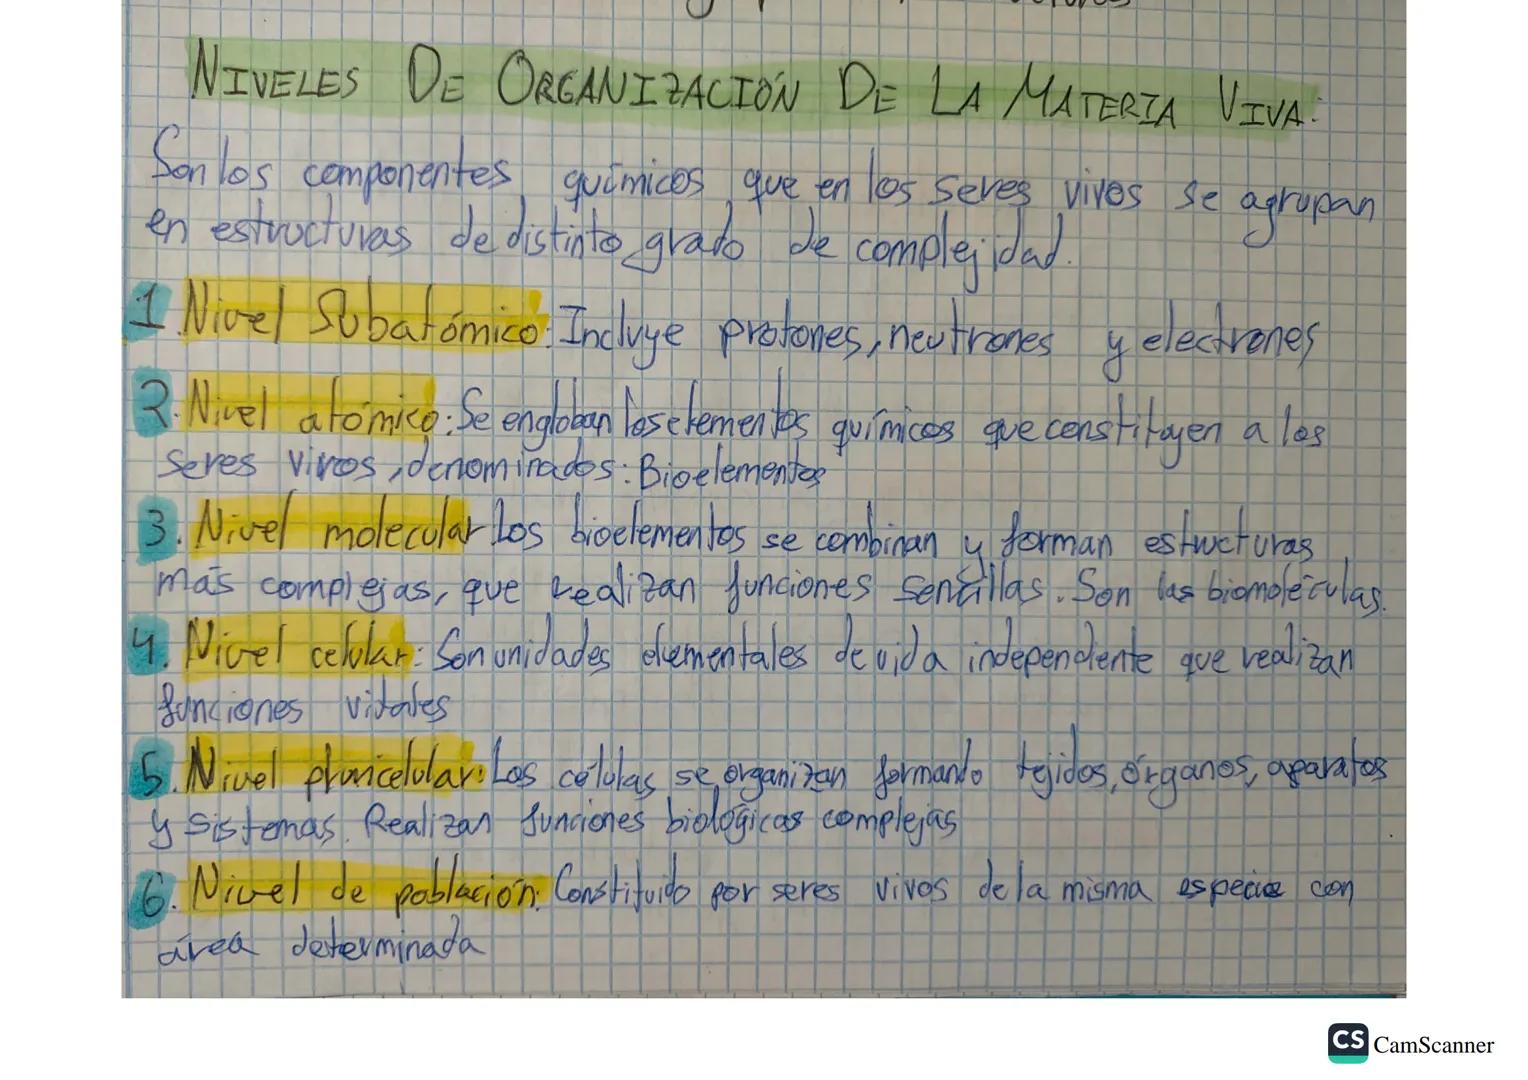 NIVELES DE ORGANIZACIÓN DE LA MATERIA VIVA:
Son los componentes químicos que en los seres vivos se agrupan
en estructuras de distinto grado de complejidad.
1. Nivel Subatómico: Incluye protones, neutrones y electrones
2. Nivel atómico: Se engloban los elementos químicos que constituyen a los
seres vivos, denominados: Bioelementos
3. Nivel molecular Los bioelementos se combinan y forman estructuras
más complejas, que realizan funciones sencillas. Son las biomoléculas.
4. Nivel celular: Son unidades elementales de vida independiente que realizan
funciones vitales
5. Nivel pluricelular: Las células se organizan formando tejidos, órganos, aparatos
y sistemas. Realizan funciones biológicas complejas
6. Nivel de población: Constituido por seres vivos de la misma especie con
área determinada
CS CamScanner